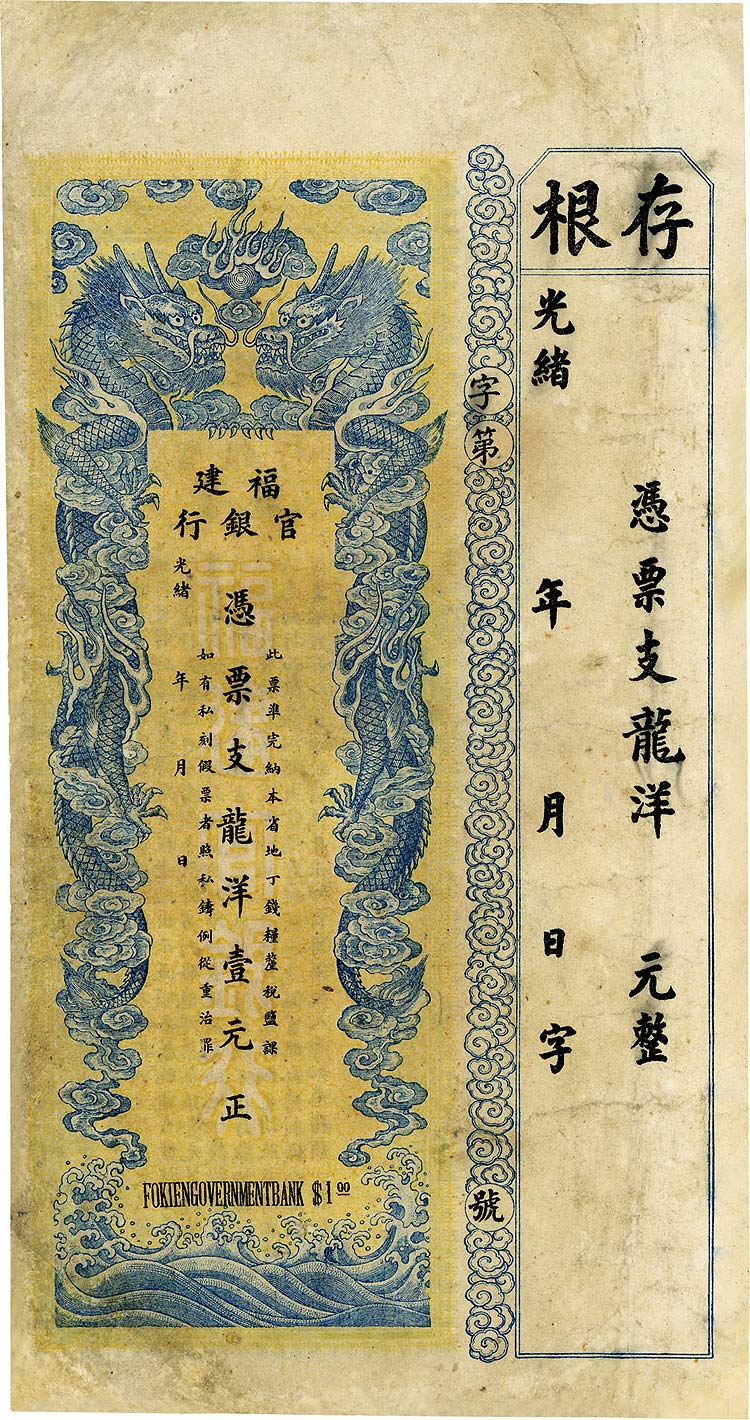 存根
憑票支龍洋 元整
光緒 年 月 日 字
字第 號
福建
官銀行
此票準完納本省地丁錢糧釐稅鹽課
憑票支龍洋壹元正
如有私刻假票者照私鑄例從重治罪
光緒 年 月 日
FOKIENGOVERNMENTBANK $1 00